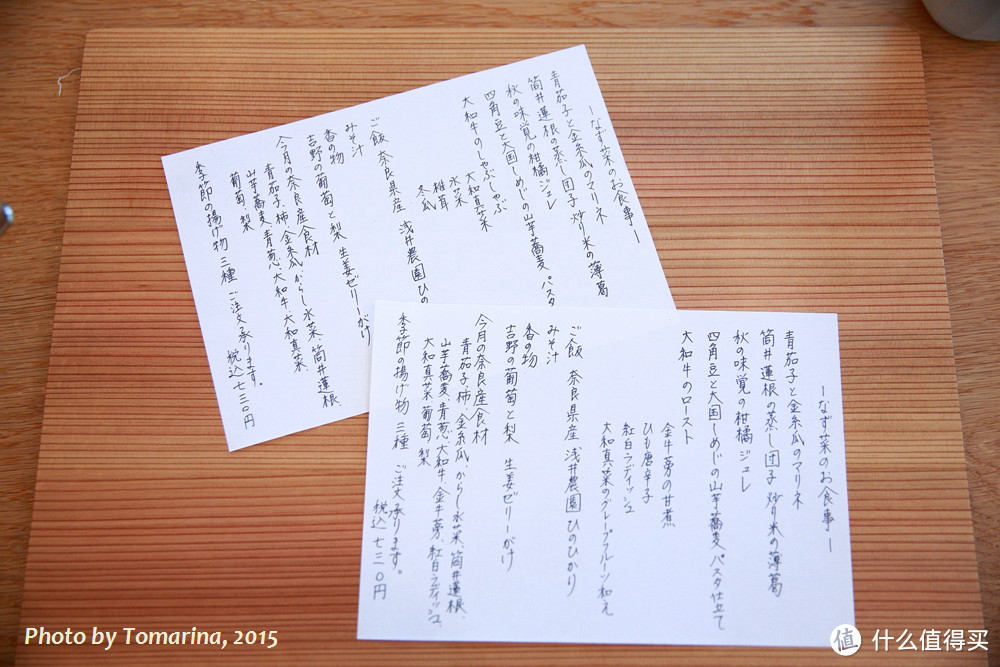 ーなず菜のお食事ー
青茄子と金糸瓜のマリネ
筒井蓮根の蒸し団子 炒り米の薄葛
秋の味覚の柑橘ジュレ
四角豆と大国しめじの山芋蕎麦パスタ
大和牛のしゃぶしゃぶ
大和真菜
水菜
椎茸
冬瓜
ご飯 奈良県産 浅井農園ひの
みそ汁
香の物
吉野の葡萄と梨 生姜ゼリーがけ
今月の奈良産食材
青茄子、柿、金糸瓜、からし水菜、筒井蓮根、
山芋蕎麦、青葱、大和牛、大和真菜
葡萄、梨
季節の揚げ物 三種 ご注文承ります。
税込 七三〇円
ーなず菜のお食事ー
青茄子と金糸瓜のマリネ
筒井蓮根の蒸し団子 炒り米の薄葛
秋の味覚の柑橘ジュレ
四角豆と大国しめじの山芋蕎麦パスタ仕立て
大和牛のロースト
金牛蒡の甘煮
ひも唐辛子
紅白ラディッシュ
大和真菜のグレープフルーツ和え
ご飯 奈良県産 浅井農園 ひのひかり
みそ汁
香の物
吉野の葡萄と梨 生姜ゼリーがけ
今月の奈良産食材
青茄子、柿、金糸瓜、からし水菜、筒井蓮根、
山芋蕎麦、青葱、大和牛、金牛蒡、紅白ラディッシュ、
大和真菜、葡萄、梨
季節の揚げ物 三種 ご注文承ります。
税込 七三〇円
Photo by Tomarina, 2015
值 什么值得买